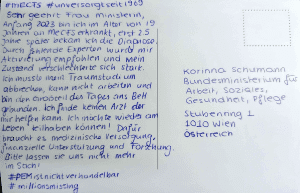 #MECTS #unversorgtseit1969
Sehr geehrte Frau Ministerin,
Anfang 2023 bin ich im Alter von 19
Jahren an MECTS erkrankt, erst 2.5
Jahre später bekam ich die Diagnose.
Durch fehlende Experten wurde mir
Aktivierung empfohlen und mein
Zustand verschlechterte sich stark.
Ich musste mein Traumstudium
abbrechen, kann nicht arbeiten und
bin den Großteil des Tages ans Bett
gebunden. Ich finde keinen Arzt der
mir helfen kann. Ich möchte wieder am
Leben teilhaben können! Dafür
braucht es medizinische Versorgung,
finanzielle Unterstützung und Forschung.
Bitte lassen Sie uns nicht mehr
im Stich!
#PEMistnichtverhandelbar
#millionsmissing
Korinna Schumann
Bundesministerium für
Arbeit, Soziales,
Gesundheit, Pflege
Stubenring 1
1010 Wien
Österreich